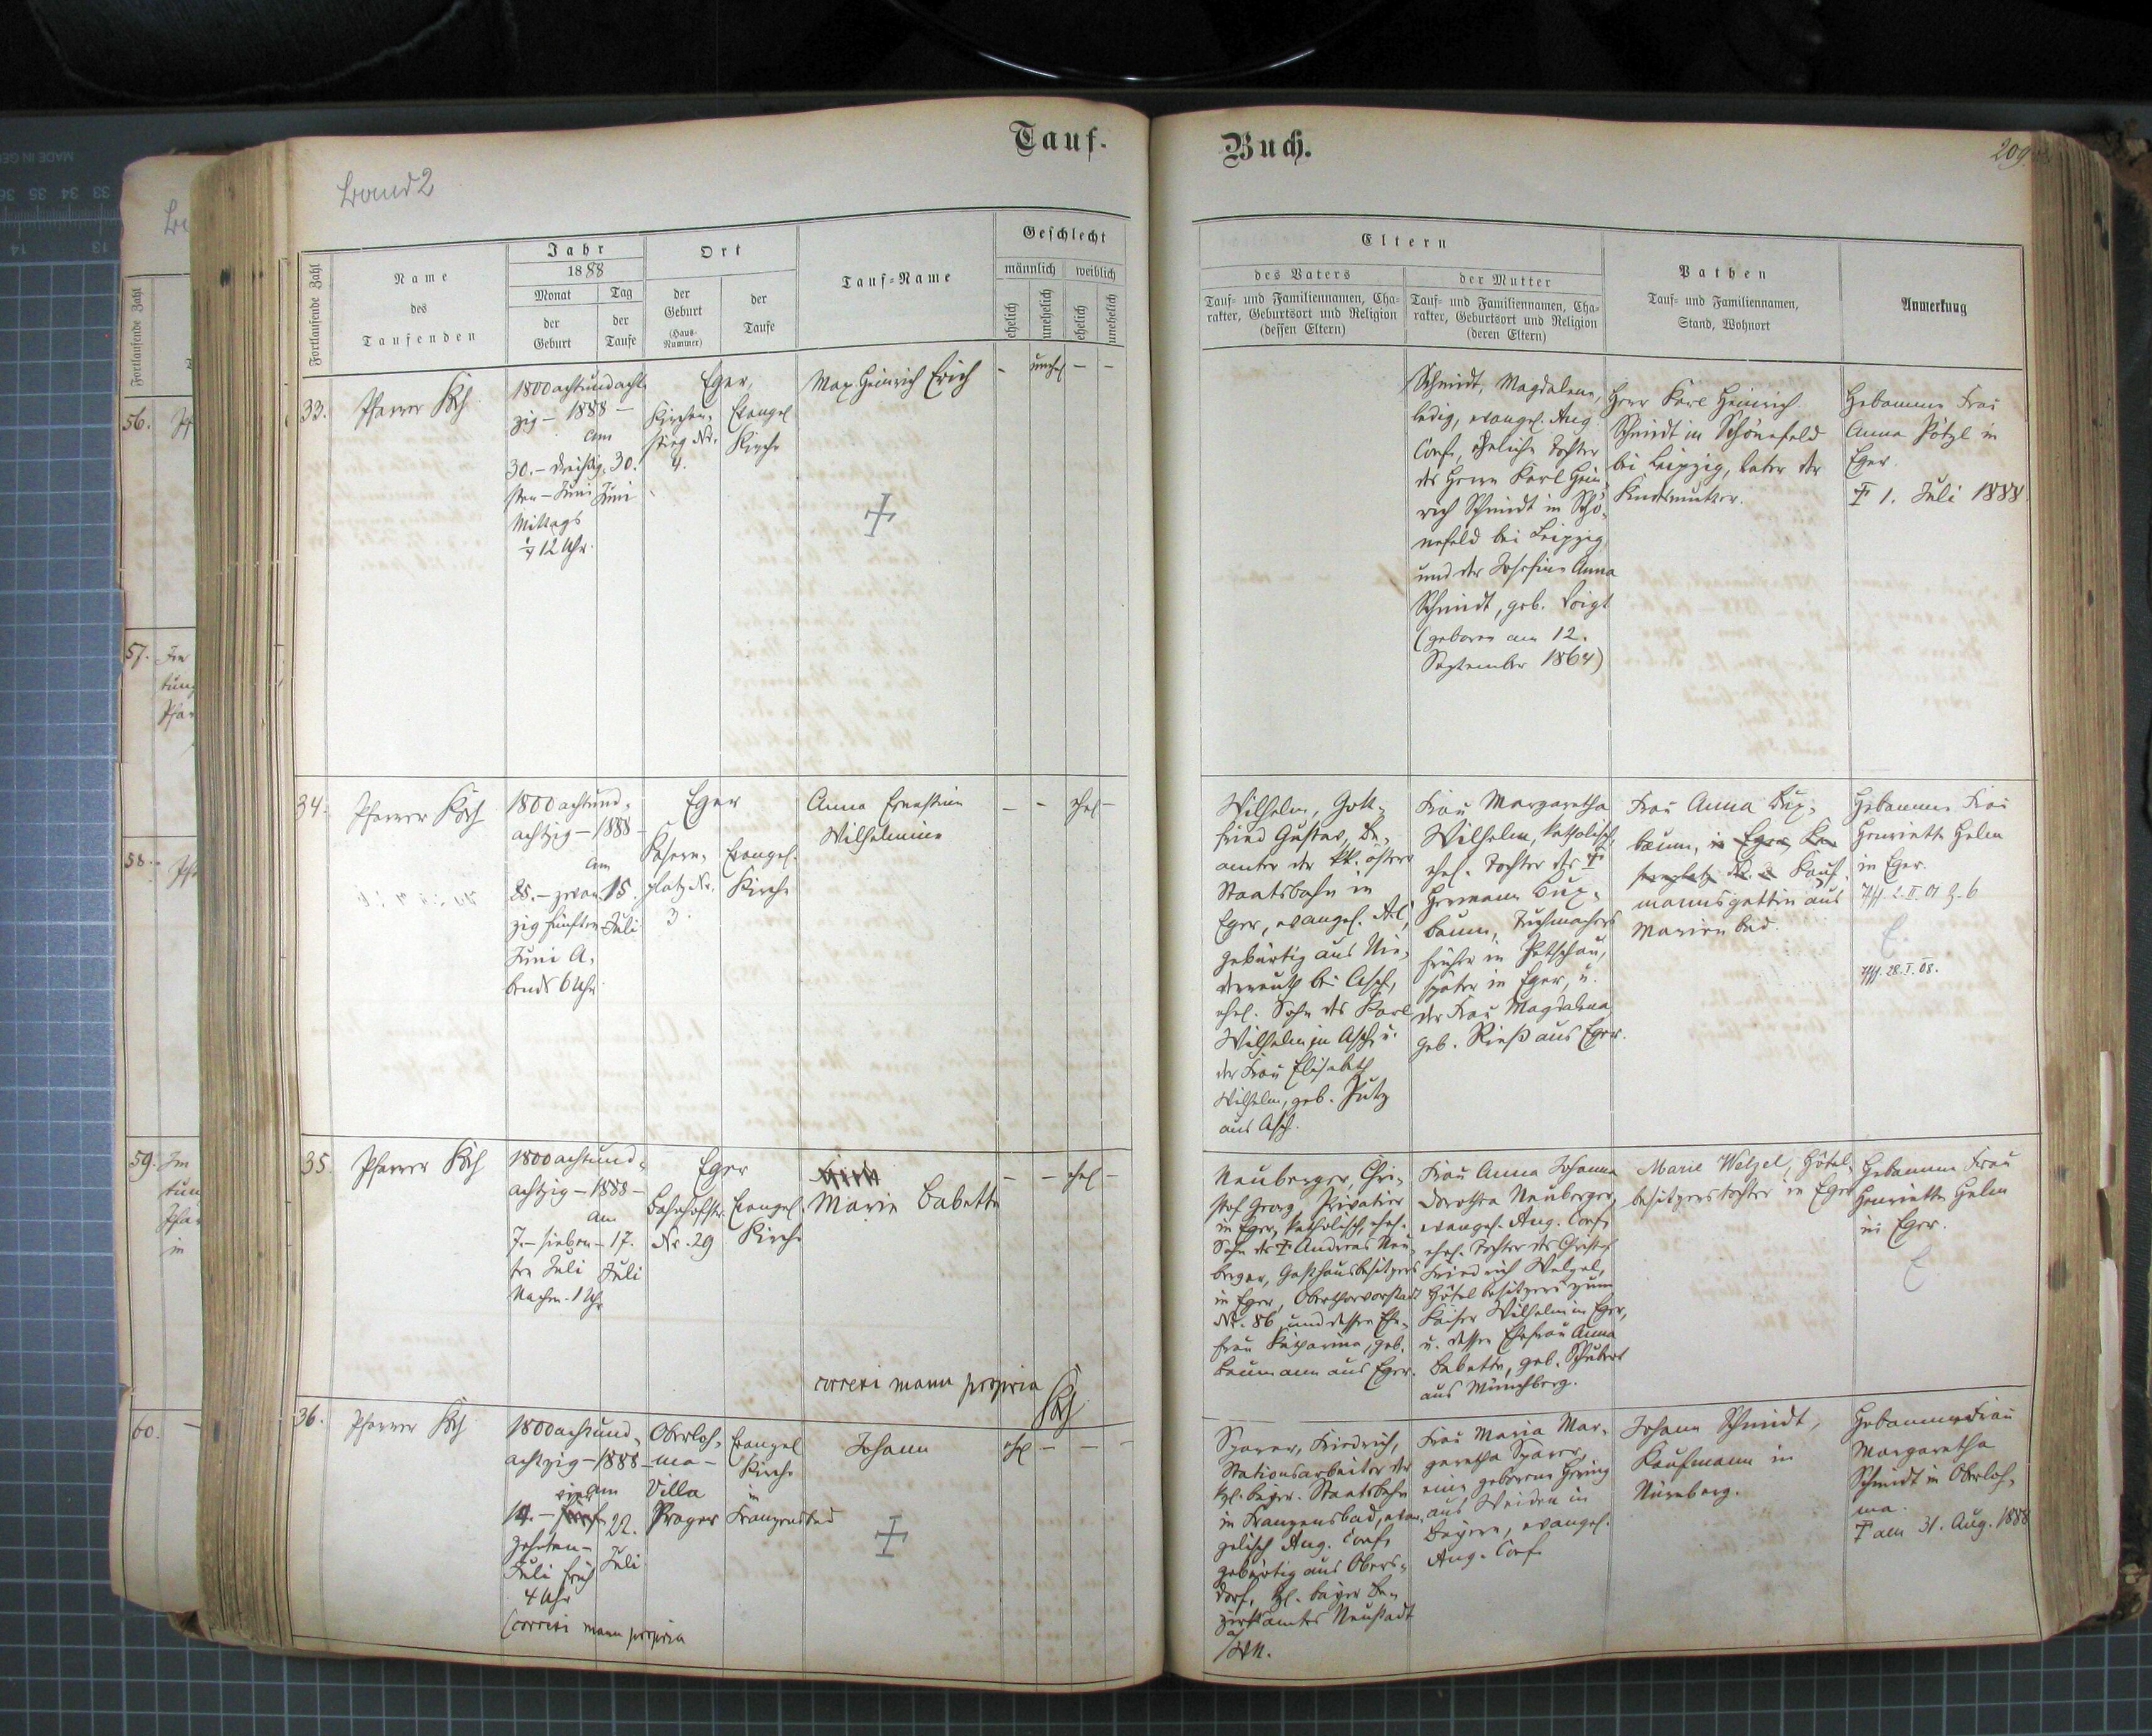 Tauf-
Buch.
209
Band 2
Fortlaufende Zahl
Name
des
Taufenden
Jahr
1888
Monat
Tag
der
Geburt
der
Taufe
Ort
der
Geburt
(Haus-
Nummer)
der
Taufe
Tauf-Name
Geschlecht
männlich
weiblich
ehelich
unehelich
ehelich
unehelich
Eltern
des Vaters
Tauf- und Familiennamen, Cha-
rakter, Geburtsort und Religion
(dessen Eltern)
der Mutter
Tauf- und Familiennamen, Cha-
rakter, Geburtsort und Religion
(deren Eltern)
Pathen
Tauf- und Familiennamen,
Stand, Wohnort
Anmerkung
33.
Pfarrer
1800 achtundacht-
zig – 1888 –
am
30. – dreißig-
sten – Juni
Mittags
12 Uhr.
30.
Juni
Eger,
Kirchen-
steig Nr.
4.
Evangel
Kirche
Max Heinrich Erich
-
unehel
-
-
Schmidt, Magdalena,
ledig, evangel. Aug.
Conf., eheliche Tochter
des Herrn Karl Hein-
rich Schmidt in Schö-
nefeld bei Leipzig
und der Josefine Anna
Schmidt, geb. Voigt
(geboren am 12.
September 1864)
Herr Karl Heinrich
Schmidt in Schönefeld
bei Leipzig, Vater der
Kindsmutter.
Hebamme Frau
Anna Pötzl in
Eger.
† 1. Juli 1888
34.
Pfarrer
1800 achtund-
achtzig – 1888 –
am
25. – zwan-
zig fünften
Juni A-
bends 6 Uhr.
15.
Juli
Eger
Kasern-
platz Nr.
3.
Evangel.
Kirche
Anna Ernestine
Wilhelmine
-
-
ehel
-
Wilhelm, Gott-
fried Gustav, Be-
amter der kk. österr
Staatsbahn in
Eger, evangel. A.C.,
gebürtig aus Nie-
derreuth bei Asch,
ehel. Sohn des Karl
Wilhelm in Asch u.
der Frau Elisabeth
Wilhelm, geb. Putz
aus Asch.
Frau Margaretha
Wilhelm, katholisch,
ehel. Tochter des †
Hermann Bux-
baum, Tuchmachers
früher in Petschau,
später in Eger, u.
der Frau Magdalena
geb. Rieß aus Eger.
Frau Anna Bux-
baum, in Eger, Ka-
sernplatz Nr. 3 Kauf-
mannsgattin aus
Marienbad.
Hebamme Frau
Henriette Helm
in Eger.
28.I.08.
35.
Pfarrer
1800 achtund-
achtzig – 1888 –
am
7. – sieben-
ten Juli
Nachm. 1 Uhr
17.
Juli
Eger
Bahnhofstr.
Nr. 29
Evangel.
Kirche
Marie Babette
-
-
ehel
-
correxi manu propria
Neuberger, Chri-
stof Georg, Privatier
in Eger, katholisch, ehel.
Sohn des † Andreas Neu-
berger, Gasthausbesitzers
in Eger, Oberthorvorstadt
Nr. 86 und dessen Ehe-
frau Katharina, geb.
Baumann aus Eger.
Frau Anna Johanna
Dorothea Neuberger,
evangel. Aug. Conf.
ehel. Tochter des Christof
Friedrich Welzel,
Hôtelbesitzers zum
Kaiser Wilhelm in Eger,
u. dessen Ehefrau Anna
Babette, geb. Schubert
aus Münchberg.
Marie Welzel, Hôtel-
besitzerstochter in Eger
Hebamme Frau
Henriette Helm
in Eger.
36.
Pfarrer
1800 achtund-
achtzig – 1888 –
am
14. – vier
zehnten –
Juli früh
4 Uhr
(correxi manu propria
22.
Juli
Oberloh-
ma –
Villa
Prager
Evangel
Kirche
in
Franzensbad
Johann
ehel
-
-
-
Sparrer, Friedrich,
Stationsarbeiter der
kgl. bayer. Staatsbahn
in Franzensbad, evan-
gelisch Aug. Conf.
gebürtig aus Obers-
dorf, kgl. bayer Be-
zirksamtes Neustadt
a/WN.
Frau Maria Mar-
garetha Sparrer,
eine geborene Hering
aus Weiden in
Bayern, evangel.
Aug. Conf.
Johann Schmidt,
Kaufmann in
Nürnberg.
Hebamme Frau
Margaretha
Schmidt in Oberloh-
ma.
† am 31. Aug. 1888
56.
57.
58.
59.
60.